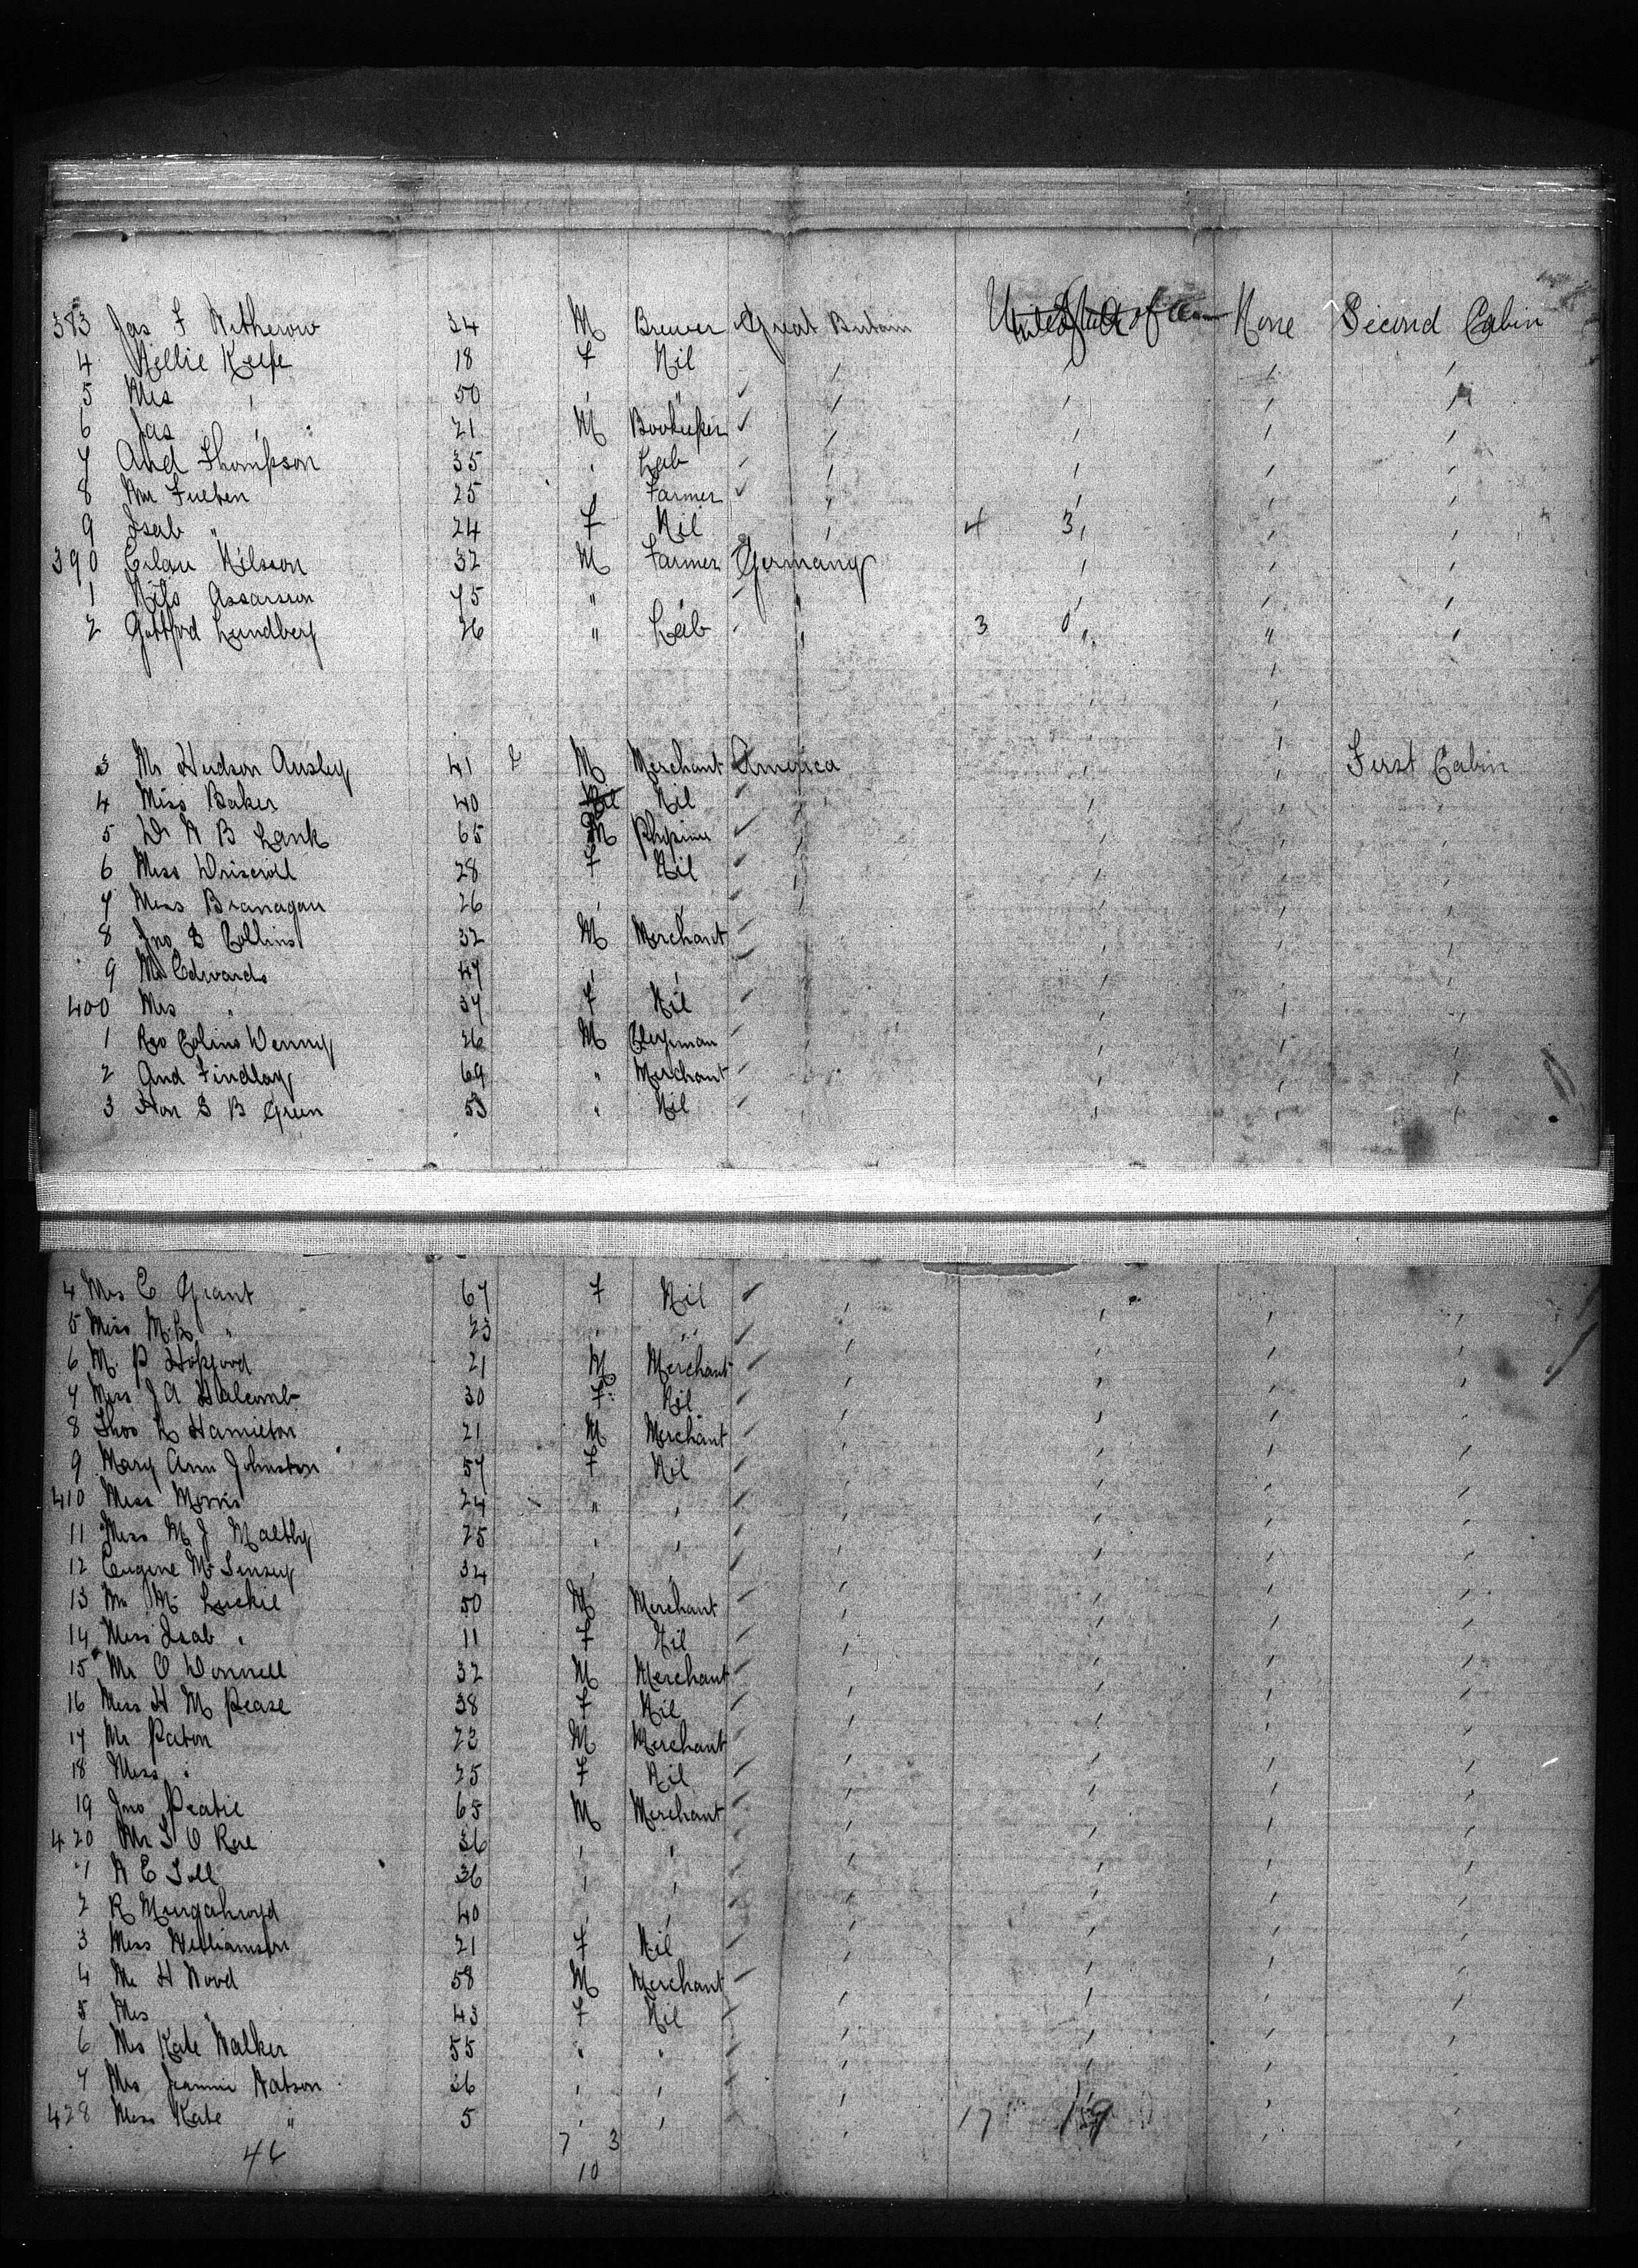 383 Jas F Witherow 34 M Brewer Great Britain United States of None Second Cabin
4 Nellie Keefe 18 F Nil
5 Mrs " 50 " "
6 Jas " 21 M Bookeeper
7 And Thompson 35 " Lab
8 Mr 25 " Farmer
9 Isab " 24 F Nil 4 3
390 Nilsson 32 M Farmer Germany
1 Nils Assarsson 45 " "
2 Lundberg 26 " Lab 3 0
3 Mr Hudson Ansley 41 M Merchant America First Cabin
4 Miss Baker 40 Nil
5 Dr A B Lank 65 M
6 Miss Driscroll 28 F Nil
7 Miss Branagan 26 " "
8 Jno S Collins 32 M Merchant
9 Mr Edwards 47 " "
400 Mrs " 37 F Nil
1 Rev 26 M Clergman
2 And Findlay 69 " Merchant
3 Hon S B Green 53 " Nil
4 Mrs C Grant 67 F Nil
5 Miss M.B. " 23 " "
6 M. P Hopgood 21 M Merchant
7 Miss J A Halcomb 30 F Nil
8 Thos L Hamilton 21 M Merchant
9 Mary Ann Johnston 57 F Nil
410 Miss Morris 24 " "
11 Miss M J Maltby 25 " "
12 Eugene 34 " "
13 Mr Mc Luckie 50 M Merchant
14 Miss Isab " 11 F Nil
15 Mr O Donnell 32 M Merchant
16 Miss H M Pease 38 F Nil
17 Mr Paton 23 M Merchant
18 Miss " 25 F Nil
19 Jno Peatie 65 M Merchant
420 Mr T O Roe 36 " "
1 A E Toll 36 " "
2 R Murgahroyd 40 " "
3 Miss Williamson 21 F Nil
4 Mr H Wood 58 M Merchant
5 Mrs " 43 F Nil
6 Mrs Kate Walker 55 " "
7 Mrs Jeannie Watson 26 " "
428 Miss Kate " 5 " " 17 19
46 7 3
10